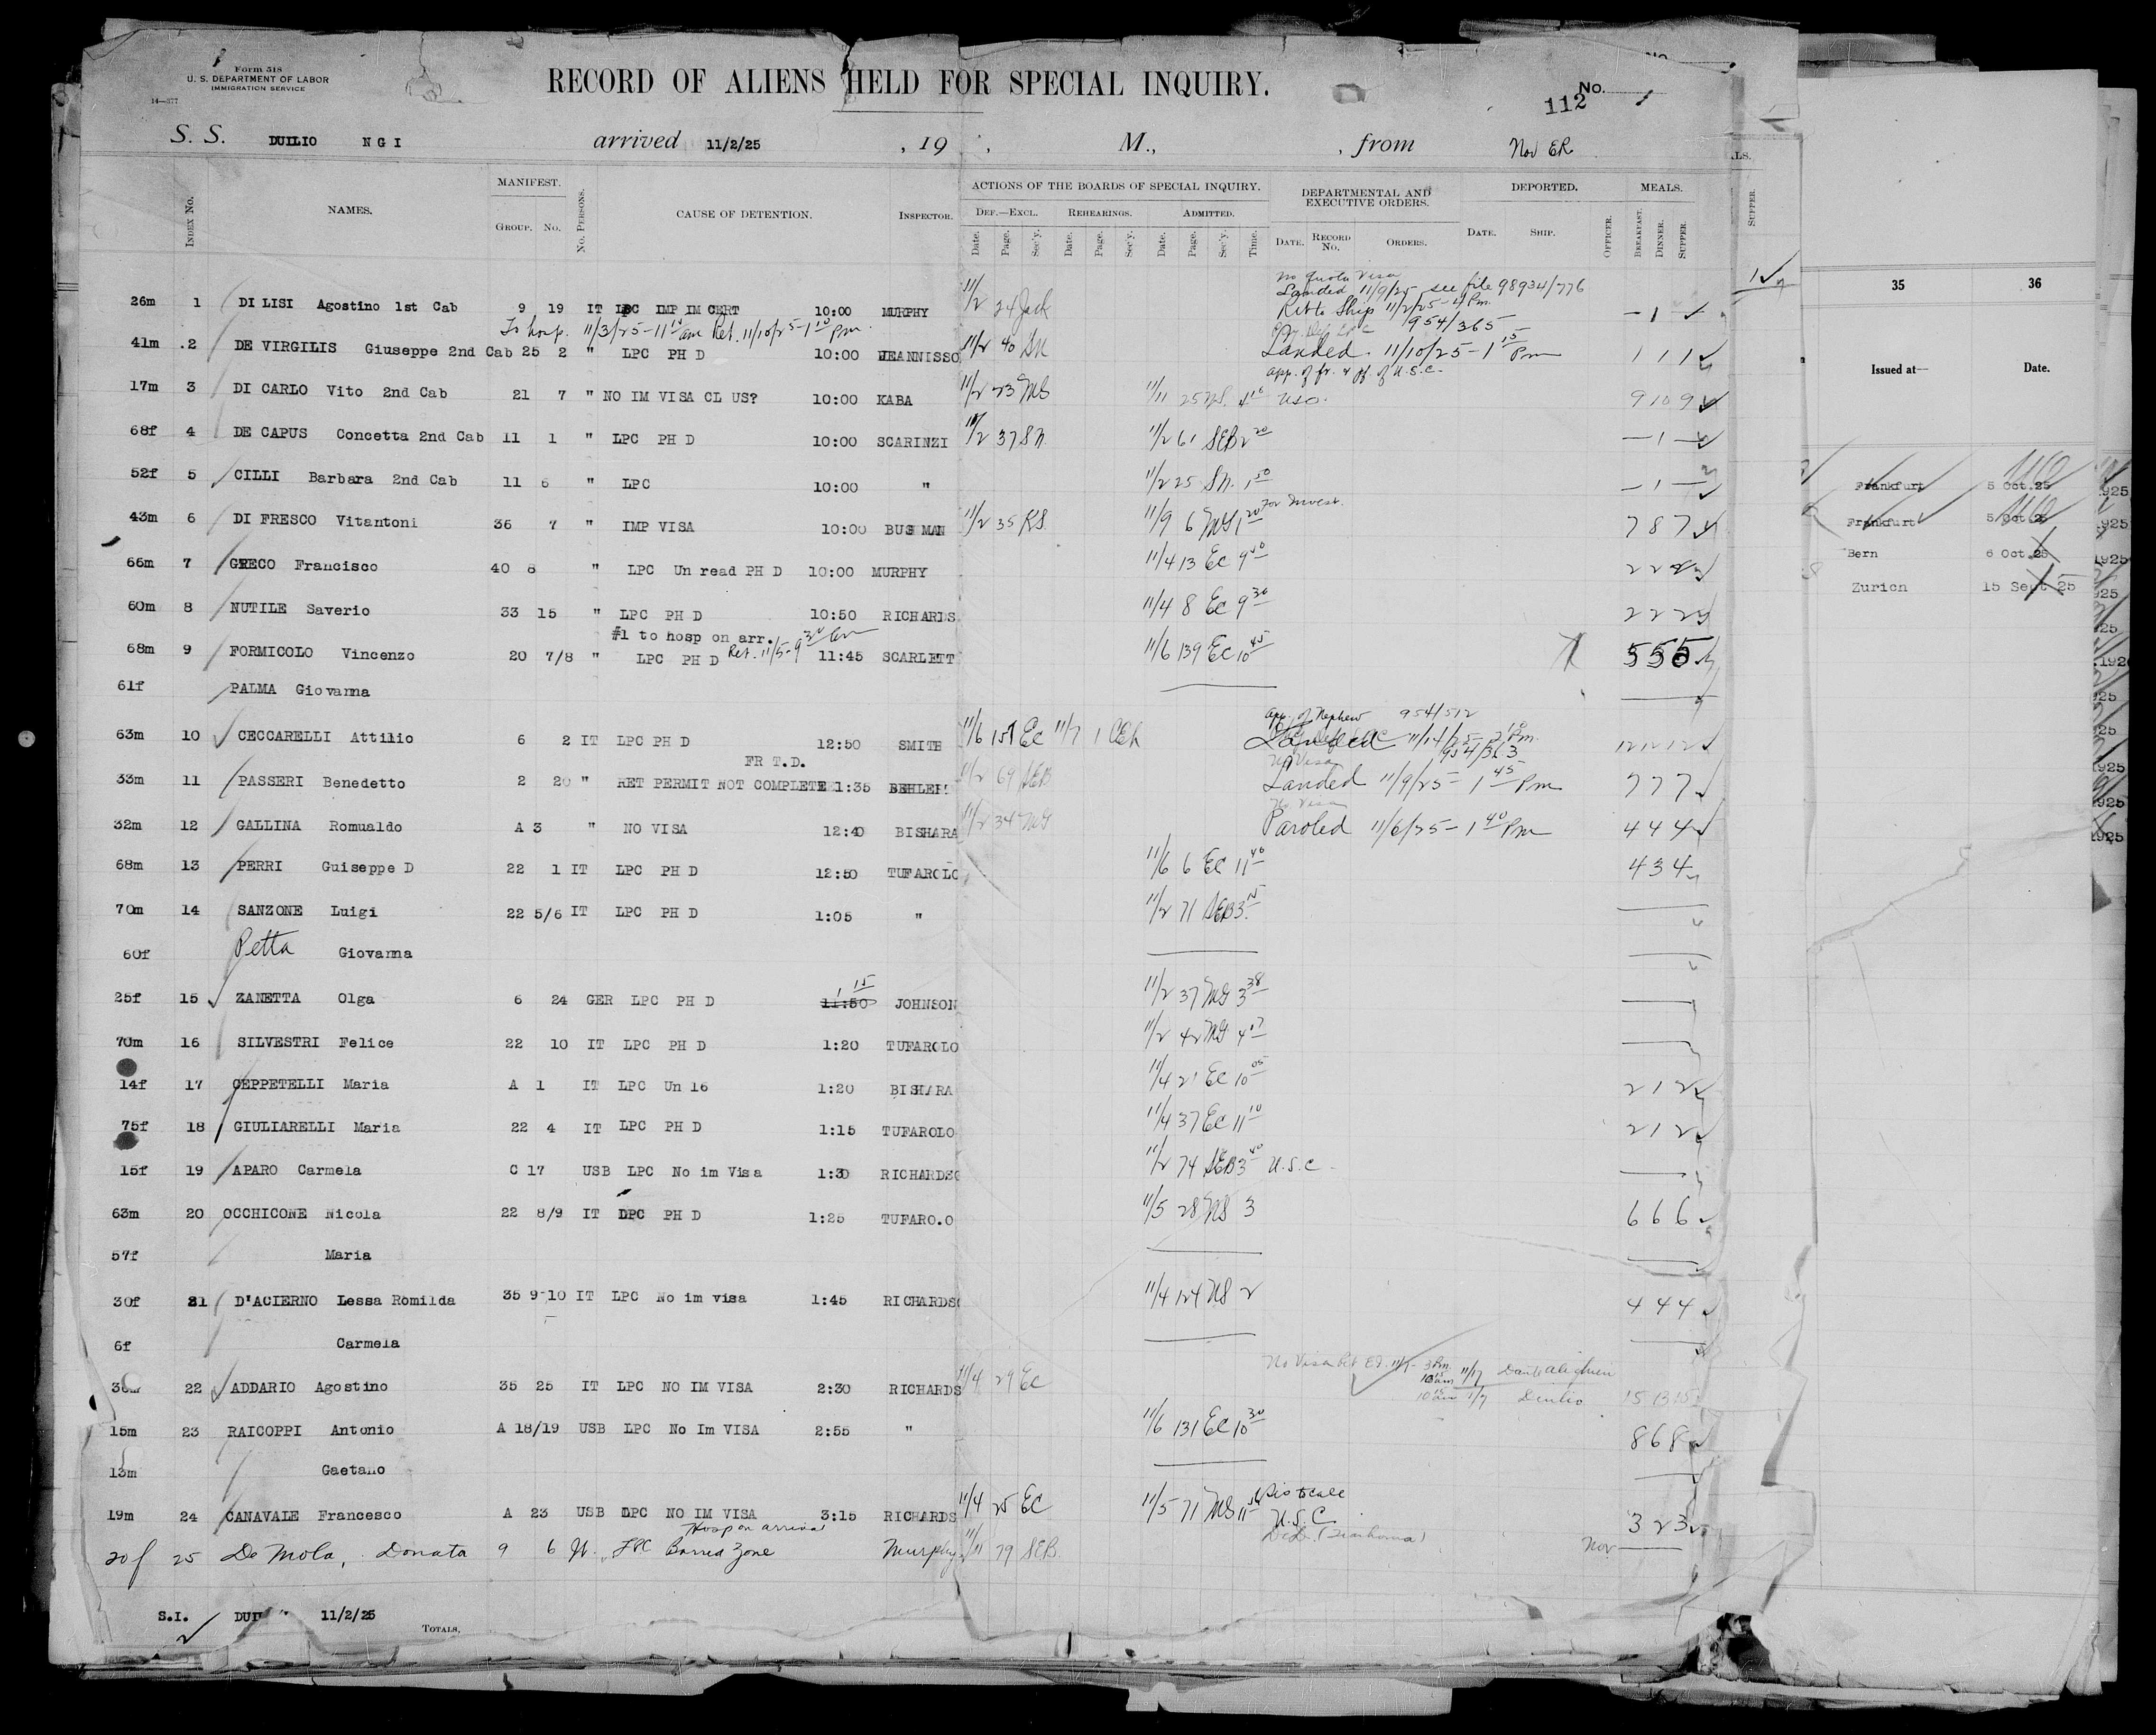 Form 518
U. S. DEPARTMENT OF LABOR
IMMIGRATION SERVICE
14—377
RECORD OF ALIENS HELD FOR SPECIAL INQUIRY.
No.
112
S. S. DUILIO N G I arrived 11/2/25 , 19 , M., , from Nov ER
INDEX No. NAMES. MANIFEST. GROUP. No. No. PERSONS. CAUSE OF DETENTION. INSPECTOR. ACTIONS OF THE BOARDS OF SPECIAL INQUIRY. DEF.—EXCL. Date. Page. Sec'y. REHEARINGS. Date. Page. Sec'y. ADMITTED. Date. Page. Sec'y. Time. DEPARTMENTAL AND EXECUTIVE ORDERS. DATE. RECORD No. ORDERS. DEPORTED. DATE. SHIP. OFFICER. MEALS. BREAKFAST. DINNER. SUPPER.
No quota Visa
Landed 11/9/25 see file 98934/776
26m 1 DI LISI Agostino 1st Cab 9 19 IT LPC IMP IM CERT 10:00 MURPHY 11/2 24 Jack Ret to Ship 11/2/25 - 4 Pm. — 1
To hosp. 11/3/25 - 11 10 am Ret. 11/10/25 - 1 10 pm. 954/365
41m 2 DE VIRGILIS Giuseppe 2nd Cab 25 2 " LPC PH D 10:00 JEANNISSO 11/2 40 SN Landed. 11/10/25 - 1 15 Pm 1 1 1
app. of fr. & pf of U.S.C.
17m 3 DI CARLO Vito 2nd Cab 21 7 " NO IM VISA CL US? 10:00 KABA 11/2 23 MS 11/11 25 4 10 9 10 9
68f 4 DE CAPUS Concetta 2nd Cab 11 1 " LPC PH D 10:00 SCARINZI 11/2 37 SN 11/2 61 SEB 2 20 — 1 —
52f 5 CILLI Barbara 2nd Cab 11 6 " LPC 10:00 " 11/2 25 SN. 1 50 — 1 —
43m 6 DI FRESCO Vitantoni 36 7 " IMP VISA 10:00 BUSHMAN 11/2 35 RS. 11/9 6 MS 1 20 For Invest. 7 8 7
66m 7 GRECO Francisco 40 8 " LPC Un read PH D 10:00 MURPHY 11/4 13 Ec 9 50 2 2 2
60m 8 NUTILE Saverio 33 15 " LPC PH D 10:50 RICHARDS 11/4 8 Ec 9 30 2 2 2
#1 to hosp on arr. Ret. 11/5 - 9 30 am
68m 9 FORMICOLO Vincenzo 20 7/8 " LPC PH D 11:45 SCARLETT 11/6 139 Ec 10 45 5 5 5
61f PALMA Giovanna
app. of Nephew 954/512
63m 10 CECCARELLI Attilio 6 2 IT LPC PH D 12:50 SMITH 11/6 157 Ec 11/7 1 Landed 11/14/25 - 2 10 Pm. 12 12 12
FR T.D. No Visa 954/363
33m 11 PASSERI Benedetto 2 20 " RET PERMIT NOT COMPLETE 1:35 BEHLER 11/2 69 SEB Landed 11/9/25 - 1 45 Pm 7 7 7
No Visa
32m 12 GALLINA Romualdo A 3 " NO VISA 12:40 BISHARA 11/2 34 MS Paroled 11/6/25 - 1 40 Pm 4 4 4
68m 13 PERRI Guiseppe D 22 1 IT LPC PH D 12:50 TUFAROLO 11/6 6 Ec 11 40 4 3 4
70m 14 SANZONE Luigi 22 5/6 IT LPC PH D 1:05 " 11/2 71 SEB 3 15
60f Petta Giovanna
25f 15 ZANETTA Olga 6 24 GER LPC PH D 11:50 1 15 JOHNSON 11/2 37 MS 3 38
70m 16 SILVESTRI Felice 22 10 IT LPC PH D 1:20 TUFAROLO 11/2 42 MS 4 17
14f 17 CEPPETELLI Maria A 1 IT LPC Un 16 1:20 BISHARA 11/4 21 Ec 10 05 2 1 2
75f 18 GIULIARELLI Maria 22 4 IT LPC PH D 1:15 TUFAROLO 11/4 37 Ec 11 10 2 1 2
15f 19 APARO Carmela C 17 USB LPC No im Visa 1:30 RICHARDSO 11/2 74 SEB 3 40 U.S.C.
63m 20 OCCHICONE Nicola 22 8/9 IT LPC PH D 1:25 TUFARO.O 11/5 28 MS 3 6 6 6
57f Maria
30f 21 D'ACIERNO Lessa Romilda 35 9-10 IT LPC No im visa 1:45 RICHARDSO 11/4 124 MS 2 4 4 4
6f Carmela
No Visa 3 Pm. 11/17 Dante Alighieri
22 ADDARIO Agostino 35 25 IT LPC NO IM VISA 2:30 RICHARDS 11/4 29 Ec 10 15 am 1/7 Duilio 15 13 15
15m 23 RAICOPPI Antonio A 18/19 USB LPC No Im VISA 2:55 " 11/6 131 Ec 10 30 8 6 8
13m Gaetano
19m 24 CANAVALE Francesco A 23 USB LPC NO IM VISA 3:15 RICHARDS 11/4 25 EC 11/5 71 MS 11 U.S.C. 3 2 3
Hosp on arrival
20f 25 De Mola, Donata 9 6 It. LPC Barred Zone Murphy 11/11 79 SEB. Nov
S.I. DUI 11/2/25
TOTALS,
LS.
SUPPER.
35 36
Issued at— Date.
Frankfurt 5 Oct. 25
Frankfurt 5 Oct. 25
Bern 6 Oct. 25
Zurich 15 Sept 25